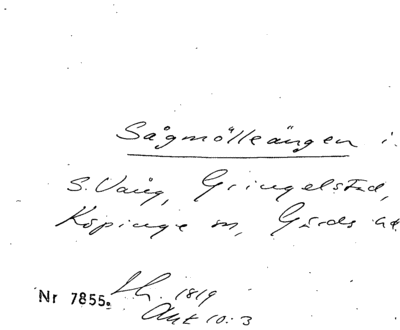 Sågmölleängen i.
S. Vång, Gringelstad,
Köpinge sn, Gärds hd.
Nr 7855. Sh. 1819
Akt 10:3